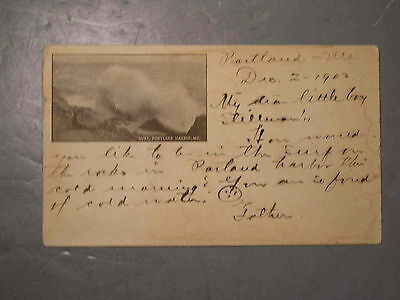 Portland - Me
Dec. 2 - 1902
My dear little boy
How would
SURF, PORTLAND HARBOR, ME.
you like to be in the surf on
the rocks in Portland harbor this
cold morning? You are so fond
of cold water.
Father.